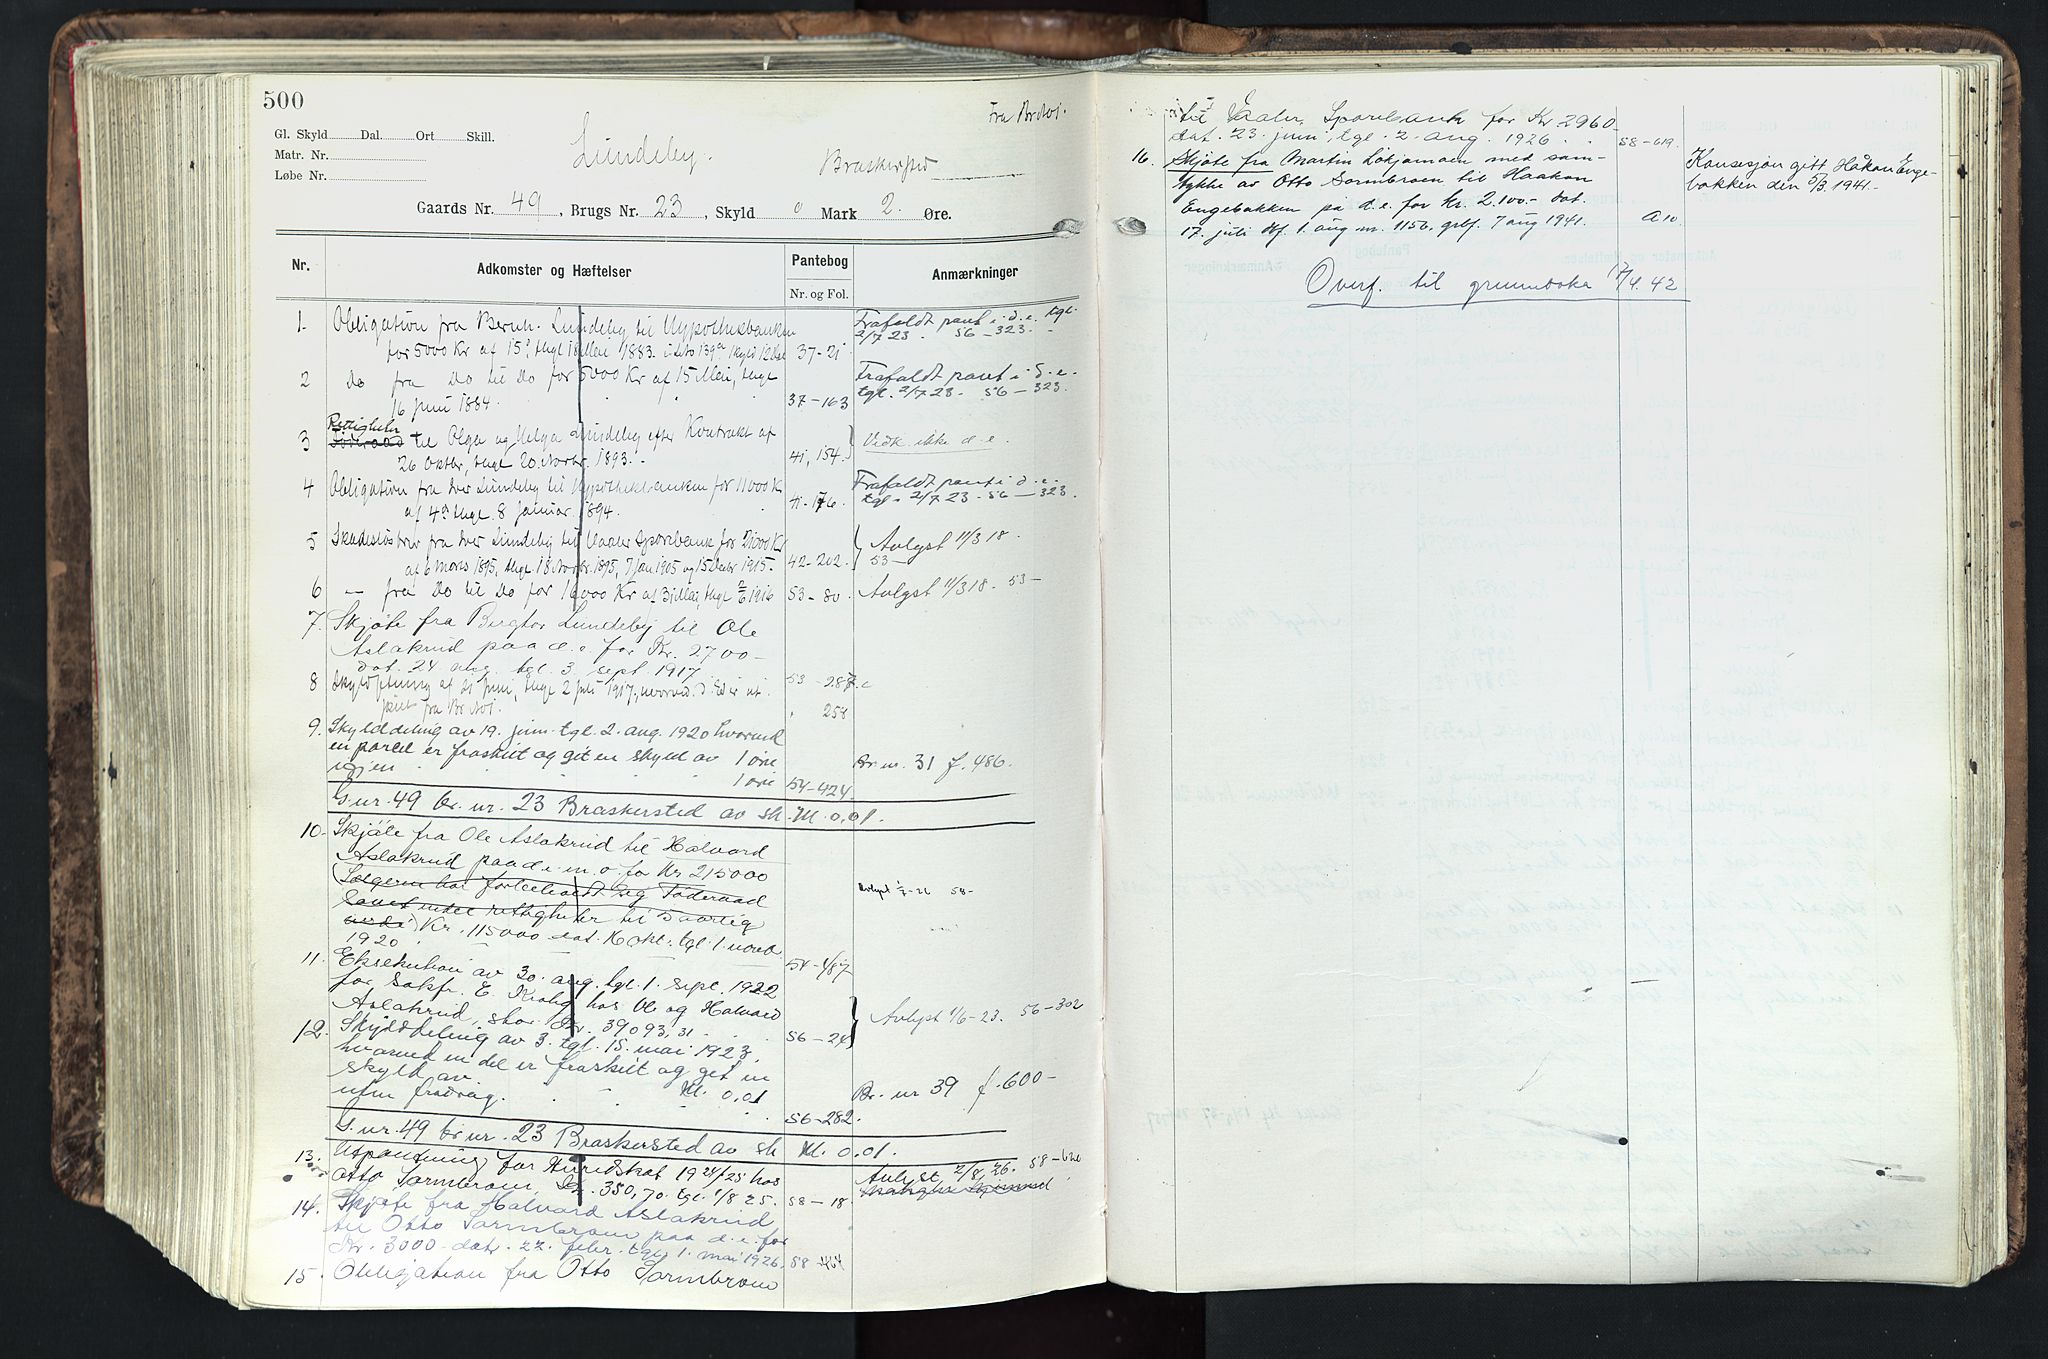 500
Fra Br. No 1.
Gl. Skyld Dal. Ort Skill.
Matr. Nr.
Løbe Nr.
Lundeby.
Braskersted
Gaards Nr. 49, Brugs Nr. 23, Skyld 0 Mark 2 Øre.
Nr. Adkomster og Hæftelser Pantebog Anmærkninger
Nr. og Fol.
1. Obligation fra Bernh. Lundeby til Hypothekbanken Frafaldt pant i d.e. tgl.
for 5000 Kr af 15, thgl 18 Mai 1883. 37-21 2/7 23. 56-323.
2 Do fra Do til Do for 5000 Kr af 15 Mai, thgl Frafaldt pant i d.e.
16 Juni 1884. 37-163 tgl. 2/7 23. 56-323.
Rettigheder
3 Föderaad til Olga og Helga Lundeby efter Kontrakt af Vedk. ikke d.e.
26 Oktbr, thgl 20 Novbr. 1893. 41, 154.
4 Obligation fra Iver Lundeby til Hypothekbanken for 11000 Kr Frafaldt pant i d.e.
af 4, thgl. 8 Januar 1894. 41-176 tgl. 2/7 23. 56-323.
5 Skadesløsbrev fra Iver Lundeby til Vaaler Sparebank for 21000 Kr Avlyst 11/3 18.
af 6 Marts 1895, thgl 18 Novbr. 1895, 7 Jan 1905 og 15 Decbr 1915. 42-202. 53-
6 — fra Do til Do for 16000 Kr af 31 Mai, thgl 2/6 1916 53-80. Avlyst 11/3 18. 53-
7. Skjøte fra Bergtor Lundeby til Ole
Aslakrud paa d.e. for Kr. 2700-
dat. 24 aug. tgl. 3. sept. 1917 53-287
8 Skylddeling af 21 Juni, thgl 2 Juli 1917, hvorved d.E. er ud-
skilt fra Br No 1. 258
9. Skylddeling av 19. juni tgl. 2. aug. 1920 hvorved
en parcel er fraskilt og git en skyld av 1 øre Br. nr. 31 f. 486.
igjen 1 øre 54-424.
G. nr. 49 br. nr. 23 Braskersted av sk. M. 0,01.
10. Skjöte fra Ole Aslakrud til Halvard
Aslakrud paa d.e. m. o. for Kr 215000
Sælgeren har forbeholdt sig Föderaad Avlyst 58-
samt andre rettigheter til 5 aarlig
verdi Kr. 115000 dat. 16 okt. tgl. 1. novbr.
1920 54-487
11. Eksekution av 30. aug. tgl. 1. sept. 1922
for Sakfr. E. Krohg hos Ole og Halvard
Aslakrud, stor Kr. 39093,31. 56-24 Avlyst 1/6-23. 56-302
12. Skylddeling av 3. tgl. 15. mai 1923,
hvorved en del er fraskilt og get en
skyld av M. 0,01 Br. nr 39 f. 600-
uten fradrag. 56-282.
G. nr. 49 br. nr. 23 Braskersted av sk M. 0,01.
13. Utpantning for Herredskat 1924/25 hos Avlyst 2/8, 26. 58-
Otto Sormbroen, Kr. 350,70. tgl. 1/8 25. 58-18
14. Skjøte fra Halvard Aslakrud
til Otto Sormbroen paa d.e. for
Kr. 3000- dat. 22. febr. tgl. 1. mai 1926. 58-
15. Obligation fra Otto Sormbroen
til Vaaler Sparebank for Kr 2960-
dat. 23. juni, tgl. 2. aug. 1926. 58-619.
16. Skjøte fra Martin Løkjamoen med sam-
tykke av Otto Sormbroen til Haakon
Engebakken på d.e. for kr. 2.100.- dat.
17. juli tgf. 1. aug nr. 1156, grbf. 7 aug 1941. A 10.
Konsesjon gitt Håkon Enge-
bakken den 5/3 1941.-
Overf. til grunnboka 7/4. 42